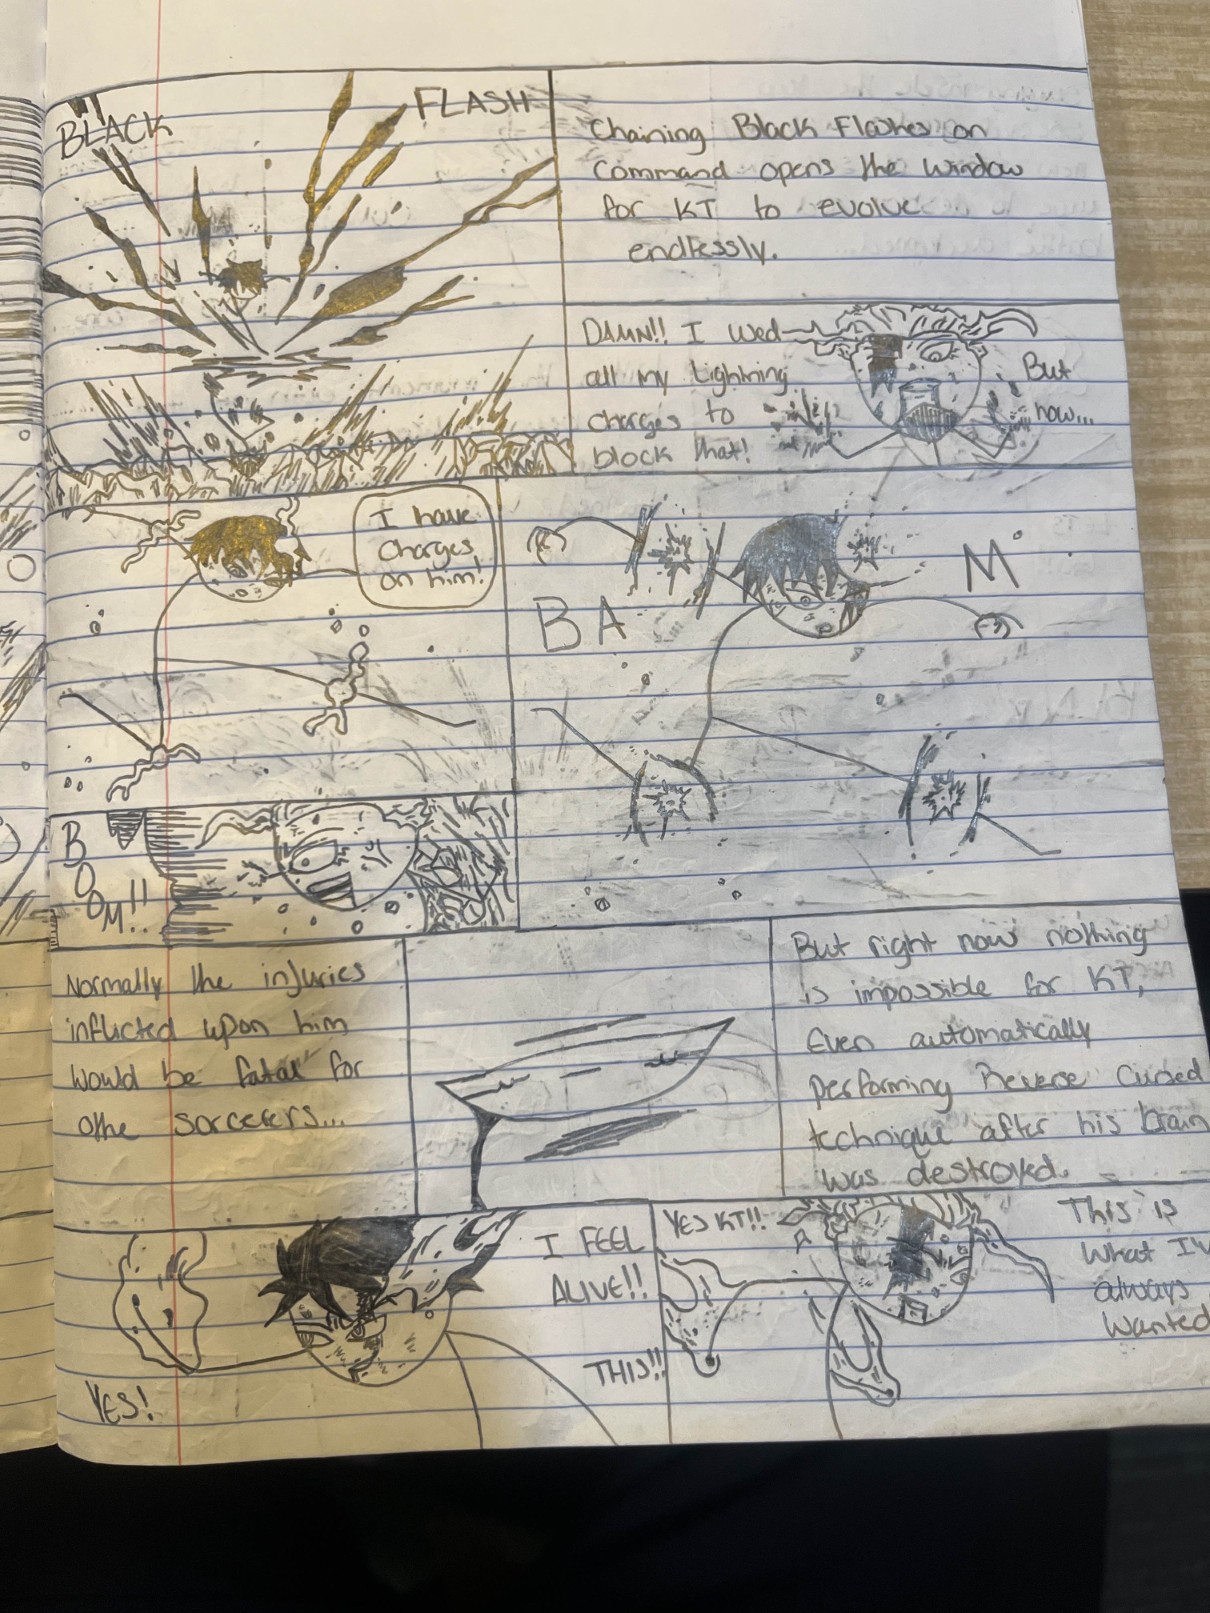 BLACK FLASH
Chaining Black Flashes on
Command opens the window
for KT to evolve
endlessly.
DAMN!! I used
all my lightning
charges to
block that!
But
now...
I have
charges
on him!
BAM
BOOM!!
Normally the injuries
inflicted upon him
would be fatal for
othe sorcerers...
But right now nothing
is impossible for KT,
Even automatically
performing Reverse Cursed
technique after his brain
was destroyed.
YES!
I FEEL
ALIVE!!
THIS!!
YES KT!!
This is
what I'v
always
wanted